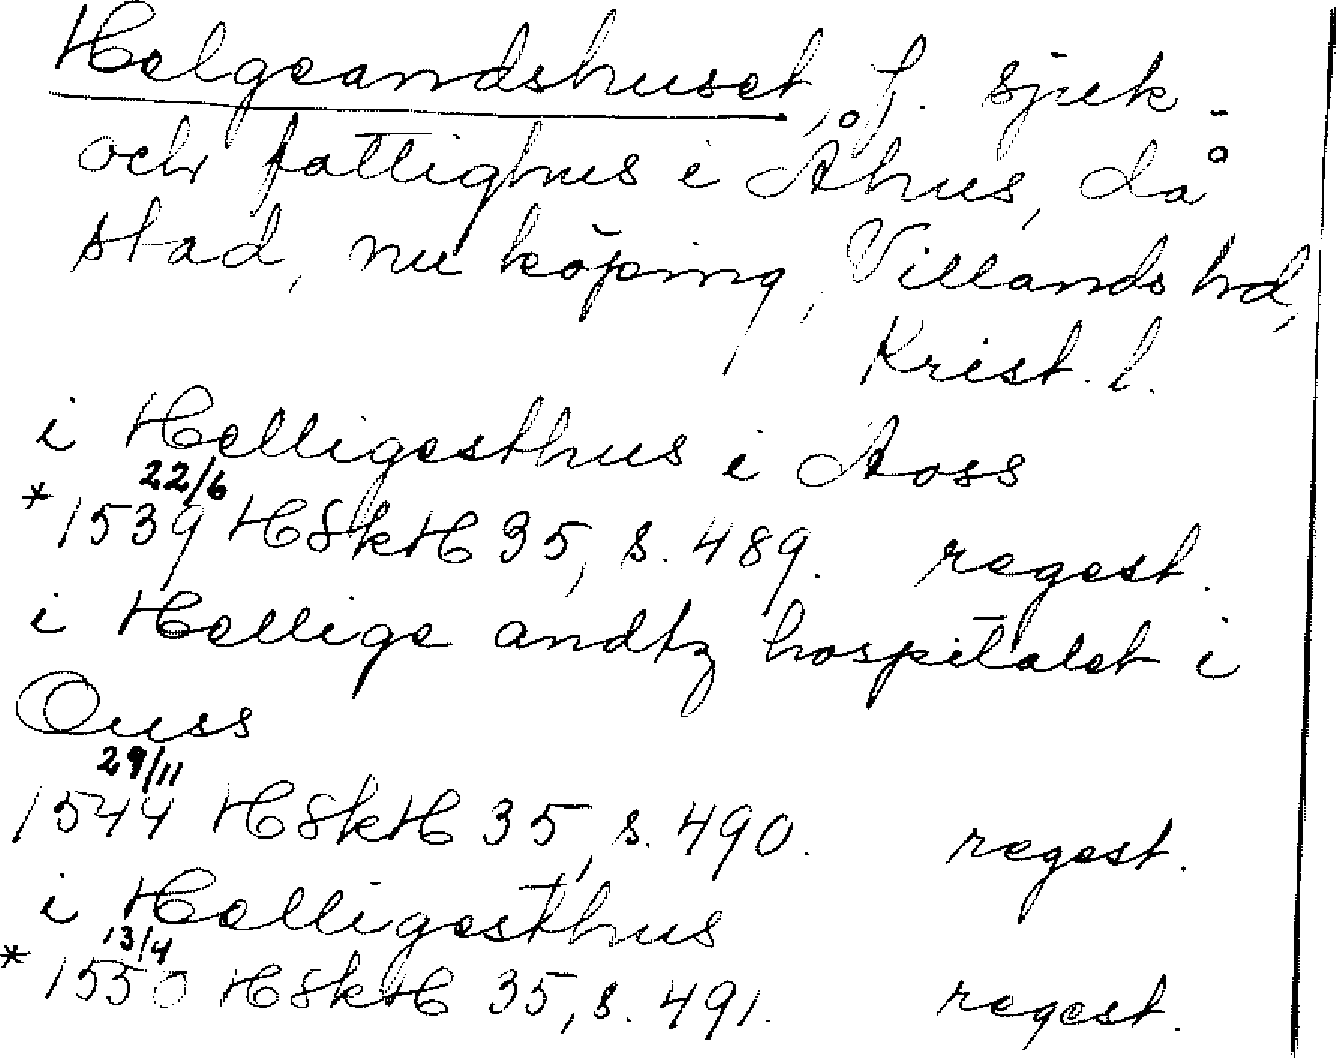 Helgeandshuset, f. sjuk-
och fattighus i Åhus, då
stad, nu köping, Villands hd,
Krist. l.
i Helligesthus i Aoss
22/6
*1539 HSkH 35, s. 489. regest.
i Hellige andtz hospitalet i
Ouss
29/11
1544 HSkH 35, s. 490. regest.
i Helligesthus
13/4
*1550 HSkH 35, s. 491. regest.